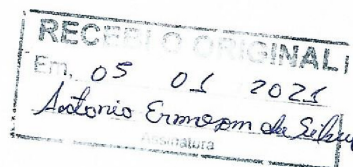 RECEBI O ORIGINAL
Em, 05 01 2021
Antonio da Silva
Assinatura